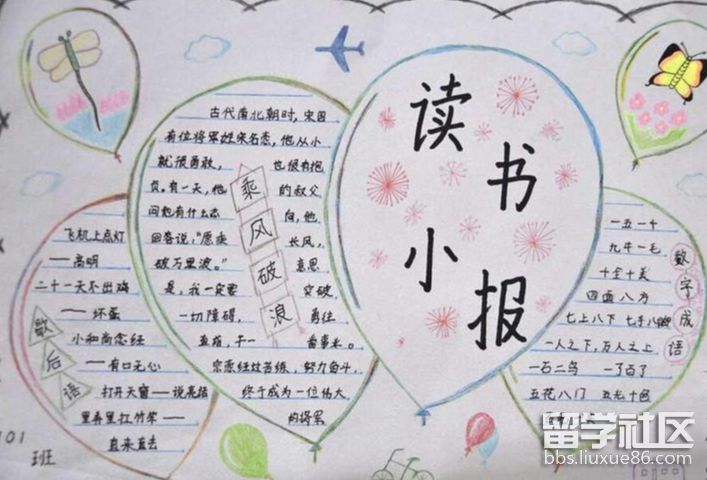 读书
小报
乘风破浪
古代南北朝时,宋国
有位将军姓宗名悫,他从小
就很勇敢,也很有抱
负。有一天,他的叔父
问他有什么志向,他
回答说,“愿乘长风,
破万里浪。”意思
是,我一定要突破,
一切障碍,勇往
直前,干一番事业。
宗悫经过苦练,努力奋斗,
终于成为一位伟大
的将军
歇后语
飞机上点灯
——高明
二十一天不出鸡
——坏蛋
小和尚念经
——有口无心
打开天窗——说亮话
里弄里扛竹竿——
直来直去
数字成语
一五一十
九牛一毛
十全十美
四面八方
七上八下 七手八脚
一人之下,万人之上
一石二鸟 一了百了
五花八门 五光十色
101
班
留学社区
bbs.liuxue86.com